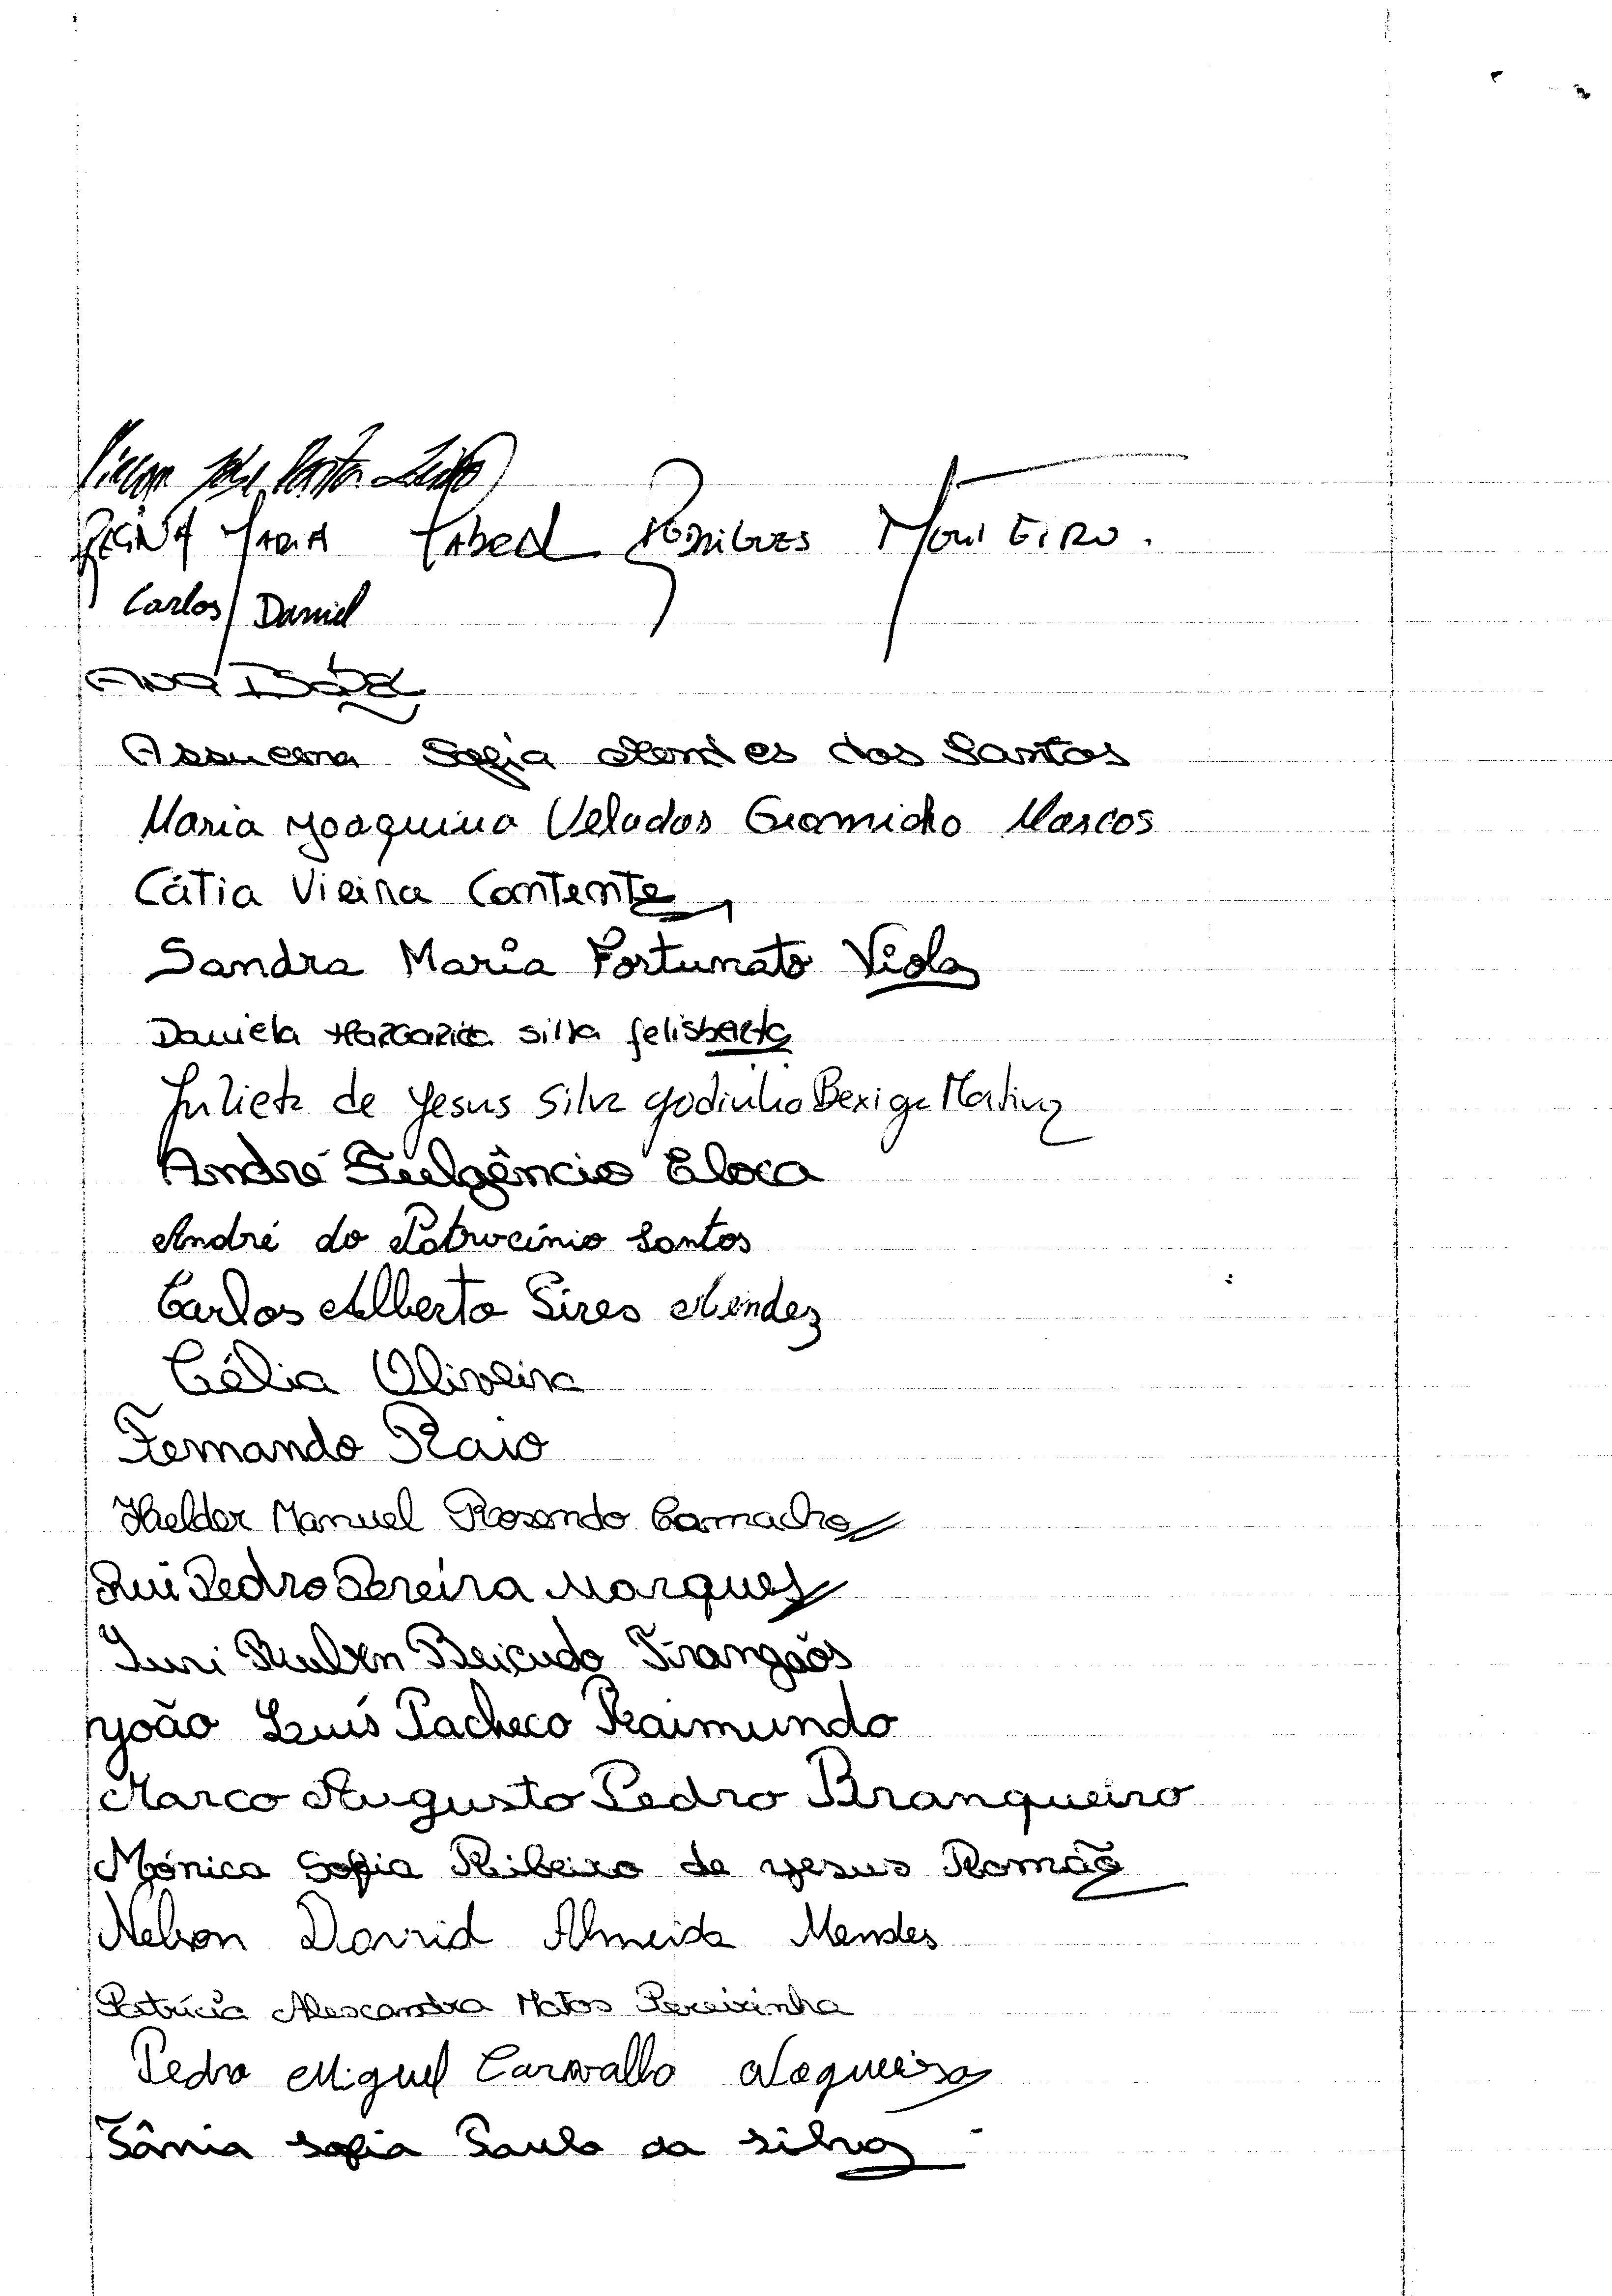 José
Maria Isabel Rodrigues Monteiro.
Carlos Daniel
Ana
Assucena Sofia Mendes dos Santos
Maria Joaquina Veludas Gramicho Marcos
Cátia Vieira Contente
Sandra Maria Fortunato Viola
Daniela Margarida Silva felisberto
Julieta de Jesus Silva Godinho Bexiga Martins
André Fulgêncio Eloca
André do Patrocínio Santos
Carlos Alberto Pires Mendez
Célia Oliveira
Fernando Raio
Helder Manuel Rosendo Camacho
Rui Pedro Pereira Marques
Iuri Ruben Beicudo Frangãos
João Luís Pacheco Raimundo
Marco Augusto Pedro Branqueiro
Mónica Sofia Ribeiro de Jesus Romão
Nelson David Almeida Mendes
Patrícia Alexandra Matos Pereirinha
Pedro Miguel Carvalho Nogueira
Tânia Sofia Paulo da Silva